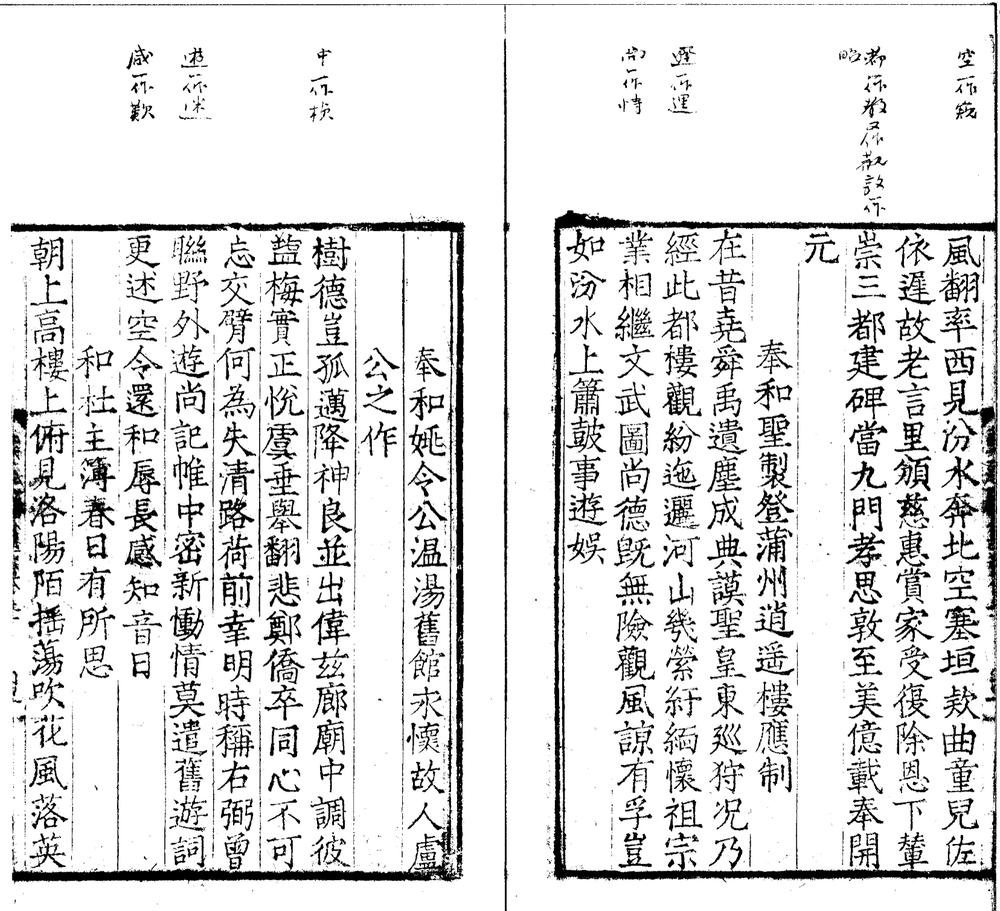 空一作窺
都一作教又作觀敦作
略
風翻率西見汾水奔北空塞垣款曲童兒佐
依遲故老言里頒慈惠賞家受復除恩下輦
崇三都建碑當九門孝思敦至美億載奉開
元
奉和聖製登蒲州逍遥樓應制
在昔堯舜禹遺塵成典謨聖皇東廵狩況乃
經此都樓觀紛迤邐河山幾縈紆緬懷祖宗
業相繼文武圖尚德旣無險觀風諒有孚豈
如汾水上簫鼓事遊娱
邐一作遑
尚一作恃
奉和姚令公温湯舊館永懷故人盧
公之作
樹德豈孤邁降神良並出偉兹廊廟中調彼
鹽梅實正悦虞垂舉翻悲鄭僑卒同心不可
忘交臂何為失清路荷前幸明時稱右弼曾
聯野外遊尚記帷中密新慟情莫遣舊遊詞
更述空令還和辱長感知音日
和杜主簿春日有所思
朝上高樓上俯見洛陽陌揺蕩吹花風落英
中一作楨
遊一作迷
感一作歎